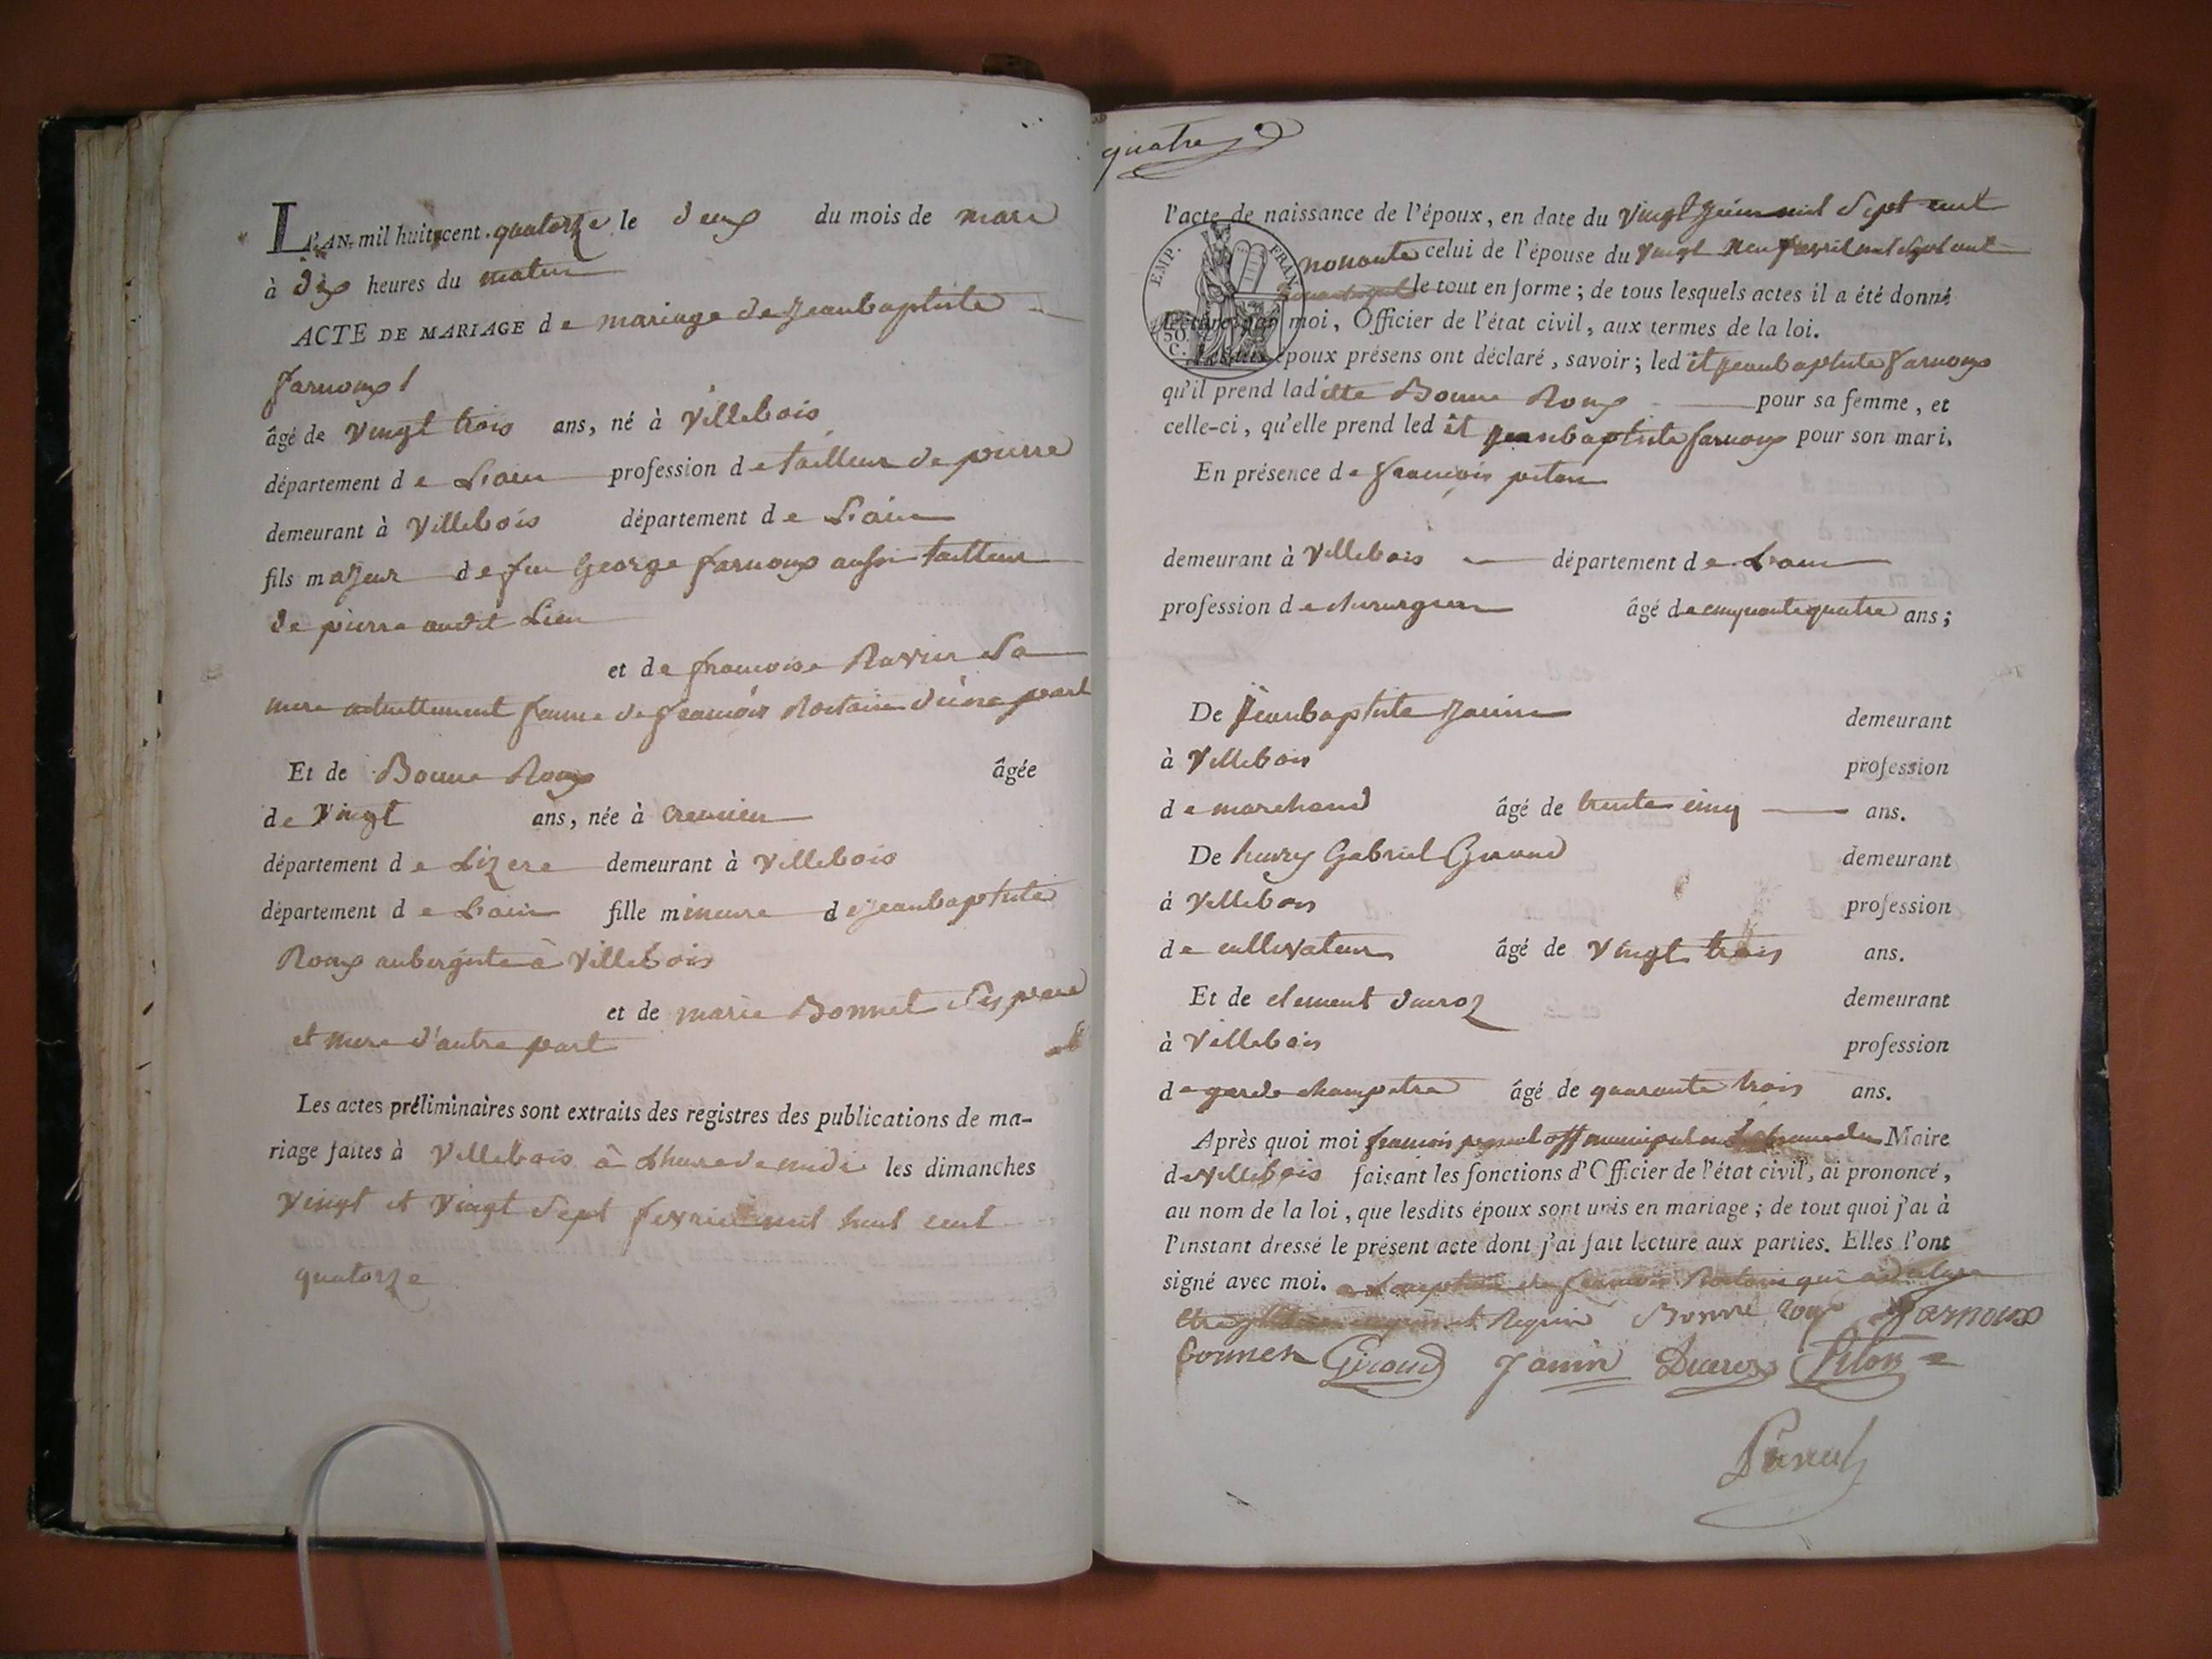 L'AN mil huit cent quatorze le deux du mois de mars
à dix heures du matin
ACTE DE MARIAGE de mariage de jeanbaptiste
farnoux
âgé de vingt trois ans, né à villebois
département de L'ain profession de tailleur de pierre
demeurant à villebois département de L'ain
fils majeur de feu George farnoux aussi tailleur
de pierre audit Lieu
et de francoise Ravier Sa
mere actuellement femme de francois Rostain d'une part
Et de Bonne Roux âgée
de vingt ans, née à cremieu
département de Lizere demeurant à villebois
département de L'ain fille mineure de jeanbaptiste
Roux aubergiste à villebois
et de marie Bonnet Ses pere
et mere d'autre part
Les actes préliminaires sont extraits des registres des publications de ma-
riage faites à villebois à Lheure de midi les dimanches
vingt et vingt sept fevrier mil huit cent
quatorze
quatre
l'acte de naissance de l'époux, en date du vingt juin mil sept cent
nonante celui de l'épouse du vingt neuf avril mil sept cent
le tout en forme; de tous lesquels actes il a été donné
lecture par moi, Officier de l'état civil, aux termes de la loi.
EMP. FRAN
50. C.
Lesdits époux présens ont déclaré, savoir; ledit jeanbaptiste farnoux
qu'il prend laditte Bonne Roux pour sa femme, et
celle-ci, qu'elle prend ledit jeanbaptiste farnoux pour son mari.
En présence de francois piton
demeurant à villebois département de L'ain
profession de chirurgien âgé de cinquante quatre ans;
De jeanbaptiste janin demeurant
à villebois profession
de marchand âgé de trente cinq ans.
De henry Gabriel Giraud demeurant
à villebois profession
de cultivateur âgé de vingt trois ans.
Et de clement ducroz demeurant
à villebois profession
de garde champetre âgé de quarante trois ans.
Après quoi moi francois municipal Maire
de villebois faisant les fonctions d'Officier de l'état civil, ai prononcé,
au nom de la loi, que lesdits époux sont unis en mariage; de tout quoi j'ai à
l'instant dressé le présent acte dont j'ai fait lecture aux parties. Elles l'ont
signé avec moi. a Lexeption de francois Rostain qui a declare
et Requis Bonne Roux farnoux
bonnet Giraud Janin Ducroz Piton